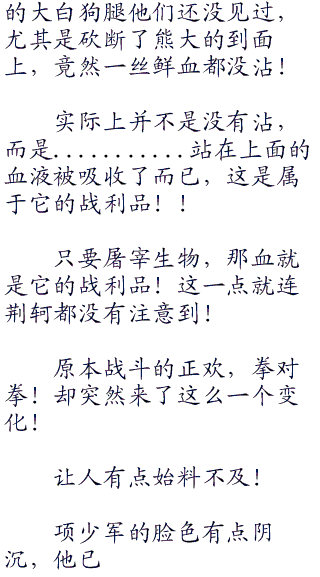 的大白狗腿他们还没见过，
尤其是砍断了熊大的到面
上，竟然一丝鲜血都没沾！
实际上并不是没有沾，
而是...........站在上面的
血液被吸收了而已，这是属
于它的战利品！！
只要屠宰生物，那血就
是它的战利品！这一点就连
荆轲都没有注意到！
原本战斗的正欢，拳对
拳！却突然来了这么一个变
化！
让人有点始料不及！
项少军的脸色有点阴
沉，他已